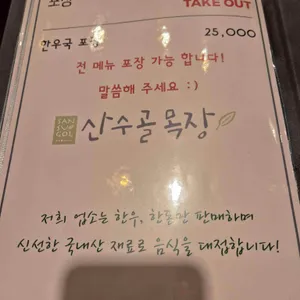 포장 TAKE OUT
한우국 포장 25,000
전 메뉴 포장 가능 합니다!
말씀해 주세요 :)
SAN
SOO
GOL
산수골목장
저희 업소는 한우, 한돈만 판매하며
신선한 국내산 재료로 음식을 대접합니다!